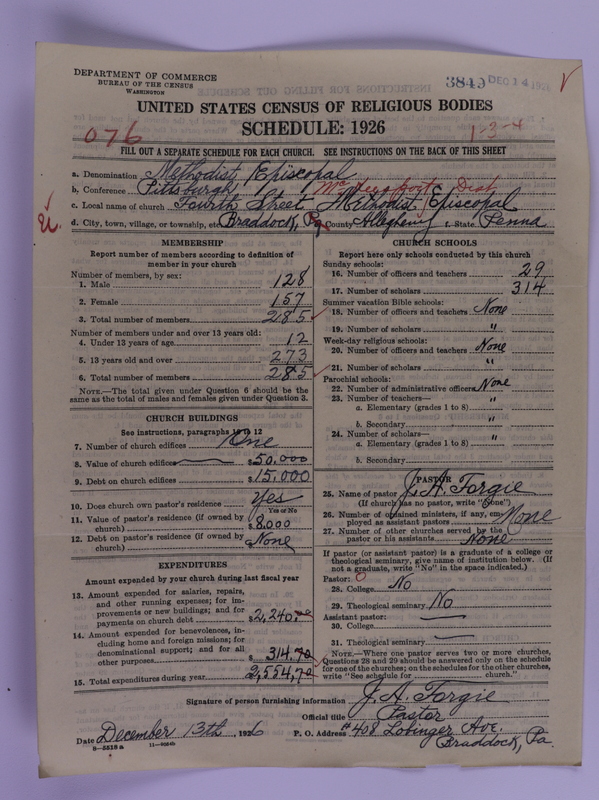 DEPARTMENT OF COMMERCE
BUREAU OF THE CENSUS
WASHINGTON
3849 DEC 14 1926
UNITED STATES CENSUS OF RELIGIOUS BODIES
SCHEDULE: 1926
076
1-3-4
FILL OUT A SEPARATE SCHEDULE FOR EACH CHURCH. SEE INSTRUCTIONS ON THE BACK OF THIS SHEET
a. Denomination Methodist Episcopal
b. Conference Pittsburgh McKeesport Dist
c. Local name of church Fourth Street Methodist Episcopal
d. City, town, village, or township, etc. Braddock, Pa County Allegheny f. State Penna
MEMBERSHIP
Report number of members according to definition of
member in your church
Number of members, by sex:
1. Male 128
2. Female 157
3. Total number of members 285
Number of members under and over 13 years old:
4. Under 13 years of age 12
5. 13 years old and over 273
6. Total number of members 285
NOTE.—The total given under Question 6 should be the
same as the total of males and females given under Question 3.
CHURCH BUILDINGS
See instructions, paragraphs 10 to 12
7. Number of church edifices One
8. Value of church edifices $50,000
9. Debt on church edifices $15,000
10. Does church own pastor's residence? Yes
Yes or No
11. Value of pastor's residence (if owned by
church) $8,000
12. Debt on pastor's residence (if owned by
church) $None
EXPENDITURES
Amount expended by your church during last fiscal year
13. Amount expended for salaries, repairs,
and other running expenses; for im-
provements or new buildings; and for
payments on church debt $2,240.
14. Amount expended for benevolences, in-
cluding home and foreign missions; for
denominational support; and for all
other purposes $314.70
15. Total expenditures during year 2,554,70
CHURCH SCHOOLS
Report here only schools conducted by this church
Sunday schools:
16. Number of officers and teachers 29
17. Number of scholars 314
Summer vacation Bible schools:
18. Number of officers and teachers None
19. Number of scholars "
Week-day religious schools:
20. Number of officers and teachers None
21. Number of scholars "
Parochial schools:
22. Number of administrative officers None
23. Number of teachers—
a. Elementary (grades 1 to 8) "
b. Secondary "
24. Number of scholars—
a. Elementary (grades 1 to 8) "
b. Secondary
PASTOR
25. Name of pastor J. A. Forgie
(If church has no pastor, write "None")
26. Number of ordained ministers, if any, em-
ployed as assistant pastors None
27. Number of other churches served by the
pastor or his assistants None
If pastor (or assistant pastor) is a graduate of a college or
theological seminary, give name of institution below. (If
not a graduate, write "No" in the space indicated.)
Pastor: 0
28. College No
29. Theological seminary No
Assistant pastor:
30. College
31. Theological seminary
NOTE.—Where one pastor serves two or more churches,
Questions 28 and 29 should be answered only on the schedule
for one of the churches; on the schedules for the other churches,
write "See schedule for church."
Signature of person furnishing information J. A. Forgie
Official title Pastor
Date December 13th, 1926 P. O. Address #408 Lobinger Ave.
Braddock, Pa.